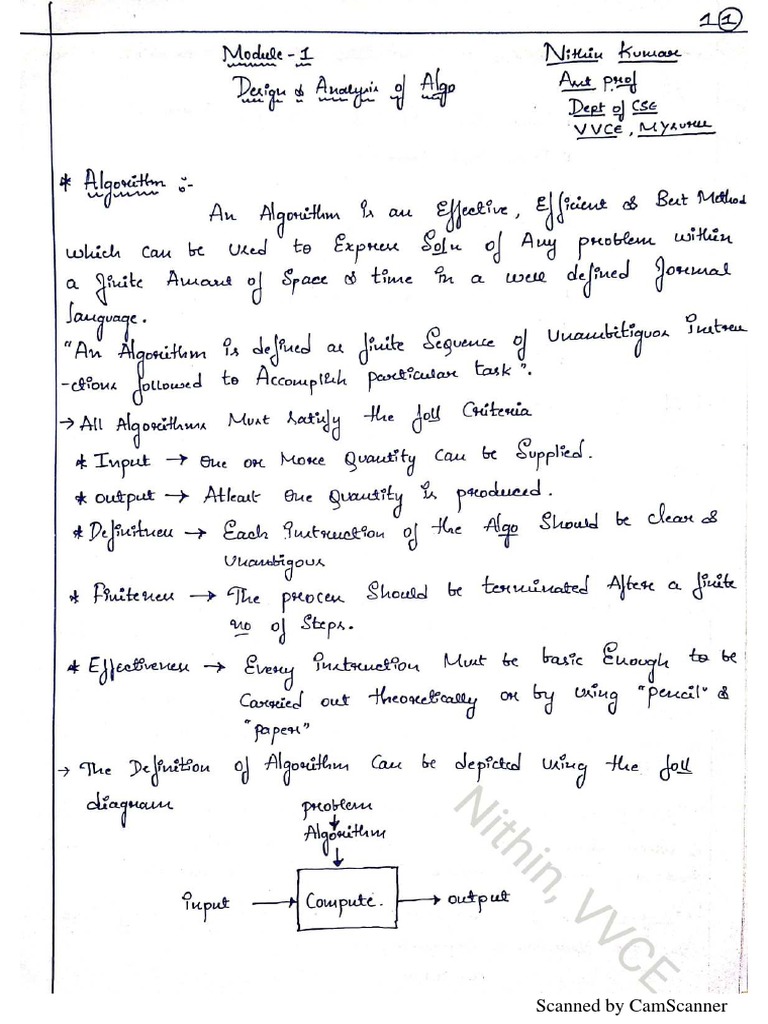 1 1
Module-1
Design & Analysis of Algo
Nithin Kumar
Asst prof
Dept of CSE
VVCE, Mysuru
* Algorithm :-
An Algorithm is an Effective, Efficient & Best Method
which can be used to Express Soln of Any problem within
a finite Amount of Space & time in a well defined formal
language.
"An Algorithm is defined as finite Sequence of Unambitiguos instru
-ctions followed to Accomplish particular task".
→ All Algorithms Must Satisfy the foll Criteria
* Input → One or More Quantity can be Supplied.
* output → Atleast One Quantity is produced.
* Definitness → Each instruction of the Algo Should be clear &
Unambigous
* Finiteness → The process Should be terminated After a finite
no of Steps.
* Effectiveness → Every instruction Must be basic Enough to be
Carried out theoretically or by using "pencil" &
"paper"
→ The Definition of Algorithm Can be depicted using the foll
diagram
problem
Algorithm
input → Compute. → output
Nithin, VVCE
Scanned by CamScanner